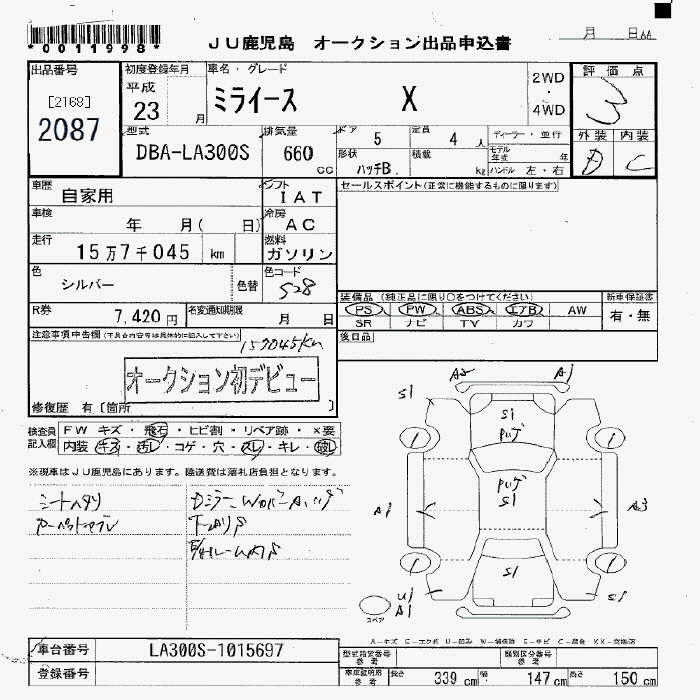 *0011998*
JU鹿児島 オークション出品申込書
月 日
出品番号
[2168]
2087
初度登録年月
平成
23 月
車名・グレード
ミライース X
2WD
・
4WD
評価点
3
外装 内装
D C
型式
DBA-LA300S
排気量
660 CC
ドア 5
定員 4 人
形状 ハッチB.
積載 kg
ディーラー・並行
モデル年式 年
ハンドル 左・右
車歴 自家用
シフト IAT
車検 年 月( 日)
冷房 AC
走行 15万7千045 km
燃料 ガソリン
色 シルバー 色替
色コード S28
R券 7,420円
名変通知期限 月 日
セールスポイント(正常に機能するものに限ります)
装備品(純正品に限り○をつけてください)
PS PW ABS エアB AW
SR ナビ TV カワ
新車保証書
有・無
後日品
注意事項申告欄(不具合内容等は具体的に記入して下さい)
157045km
オークション初デビュー
修復歴 有〔箇所 〕
検査員記入欄
FW キズ・飛石・ヒビ割・リペア跡・X要
内装・キズ・汚レ・コゲ・穴・スレ・キレ・破レ
※現車はJU鹿児島にあります。陸送費は落札店負担となります。
シートヘタリ
A2 A1
S1
S1
S1
S1
A1 A3
U1
A1
S1
スペア
車台番号 LA300S-1015697
登録番号
型式指定番号 参考
類別区分番号 参考
車庫証明用 参考
長さ 339 cm 幅 147 cm 高さ 150 cm